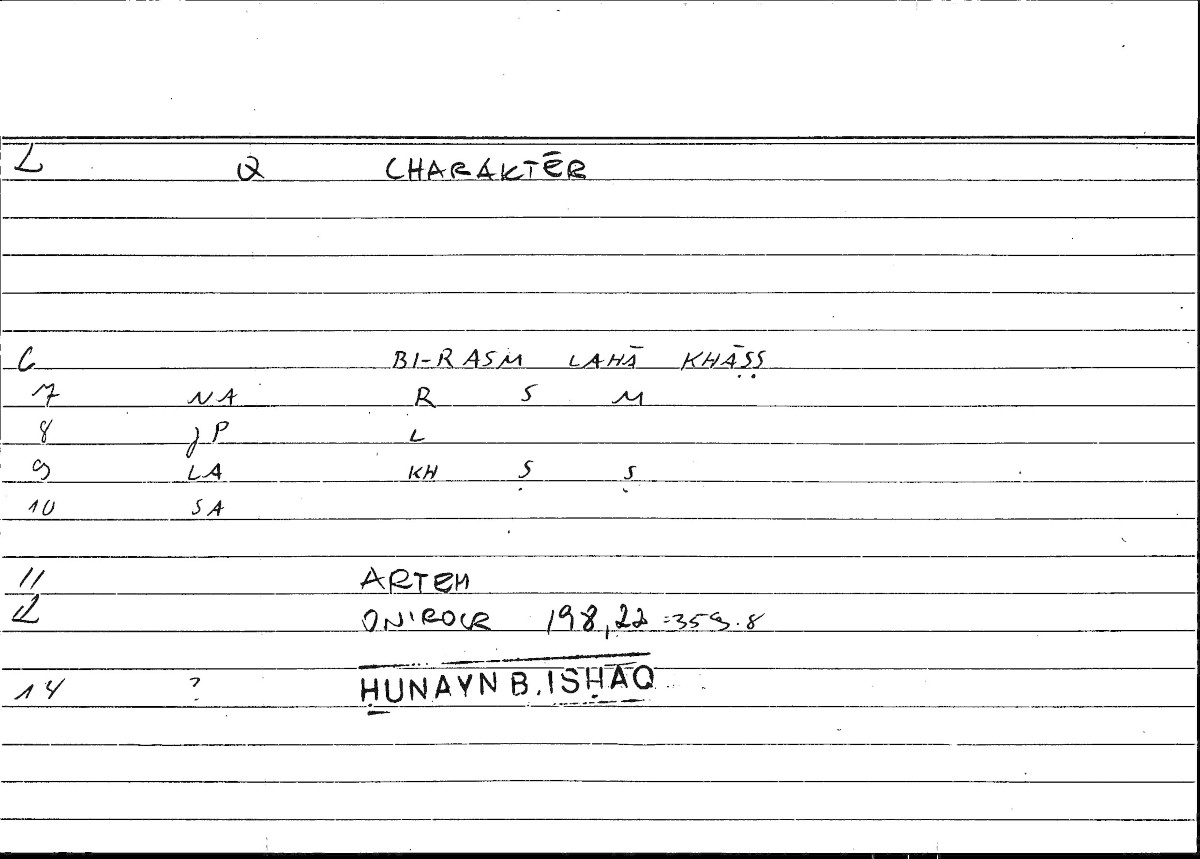 L Q CHARAKTĒR
6 BI-RASM LAHĀ KHĀṢṢ
7 NA R S M
8 jP L
9 LA KH Ṣ Ṣ
10 SA
11 ARTEM
12 ONIROCR 198,22 =359.8
14 ? ḤUNAYN B. ISḤĀQ